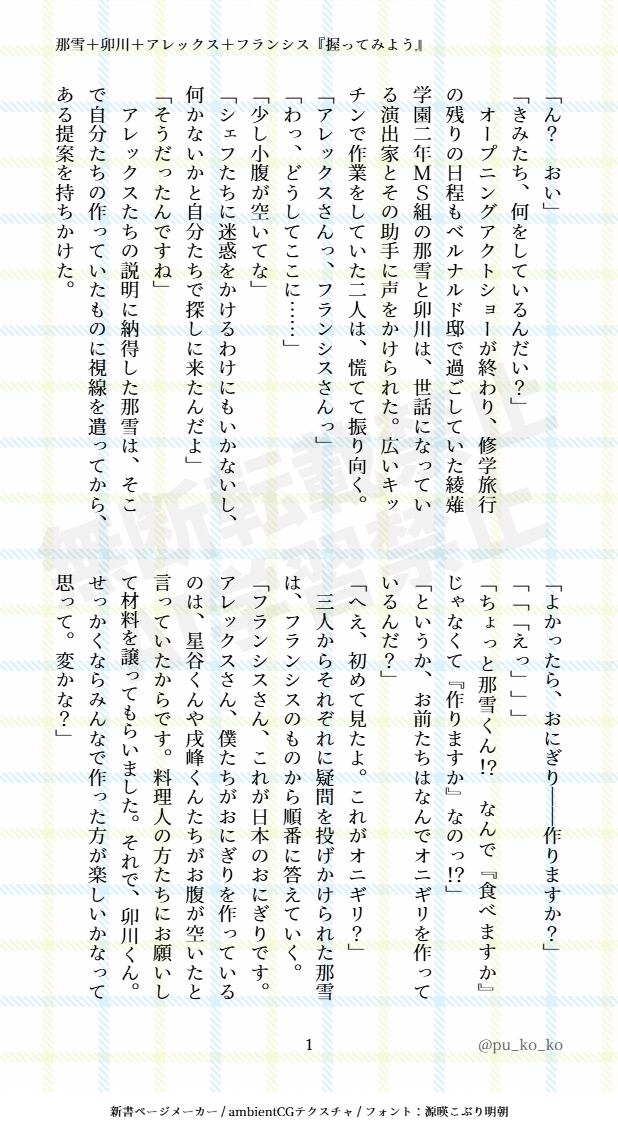 那雪＋卯川＋アレックス＋フランシス『握ってみよう』
「ん？　おい」
「きみたち、何をしているんだい？」
　オープニングアクトショーが終わり、修学旅行
の残りの日程もベルナルド邸で過ごしていた綾薙
学園二年ＭＳ組の那雪と卯川は、世話になってい
る演出家とその助手に声をかけられた。広いキッ
チンで作業をしていた二人は、慌てて振り向く。
「アレックスさんっ、フランシスさんっ」
「わっ、どうしてここに……」
「少し小腹が空いてな」
「シェフたちに迷惑をかけるわけにもいかないし、
何かないかと自分たちで探しに来たんだよ」
「そうだったんですね」
　アレックスたちの説明に納得した那雪は、そこ
で自分たちの作っていたものに視線を遣ってから、
ある提案を持ちかけた。
「よかったら、おにぎり――作りますか？」
「「「えっ」」」
「ちょっと那雪くん!?　なんで『食べますか』
じゃなくて『作りますか』なのっ!?」
「というか、お前たちはなんでオニギリを作って
いるんだ？」
「へえ、初めて見たよ。これがオニギリ？」
　三人からそれぞれに疑問を投げかけられた那雪
は、フランシスのものから順番に答えていく。
「フランシスさん、これが日本のおにぎりです。
アレックスさん、僕たちがおにぎりを作っている
のは、星谷くんや戌峰くんたちがお腹が空いたと
言っていたからです。料理人の方たちにお願いし
て材料を譲ってもらいました。それで、卯川くん。
せっかくならみんなで作った方が楽しいかなって
思って。変かな？」
無断転載禁止
AI学習禁止
1
@pu_ko_ko
新書ページメーカー / ambientCGテクスチャ / フォント：源暎こぶり明朝